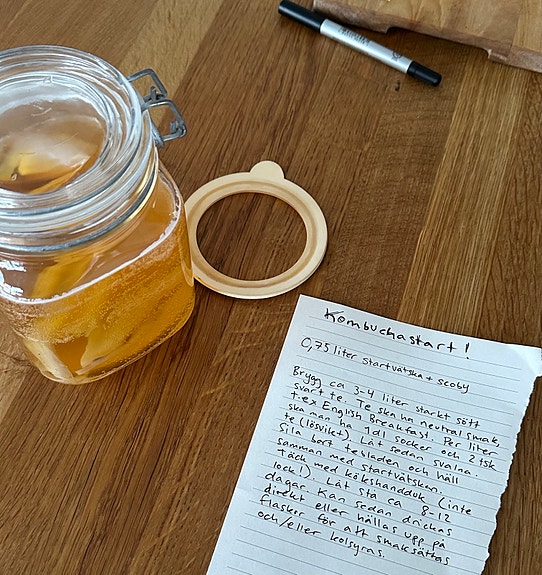 Kombuchastart!
0,75 liter startvätska + scoby
Brygg ca 3-4 liter starkt sött
svart te. Te ska ha neutral smak,
t.ex English Breakfast. Per liter
ska man ha 1 dl socker och 2 tsk
te (lösvikt). Låt sedan svalna.
Sila bort tebladen och häll
samman med startvätskan.
Täck med kökshandduk (inte
lock!). Låt stå ca 8-12
dagar. Kan sedan drickas
direkt eller hällas upp på
flaskor för att smaksättas
och/eller kolsyras.